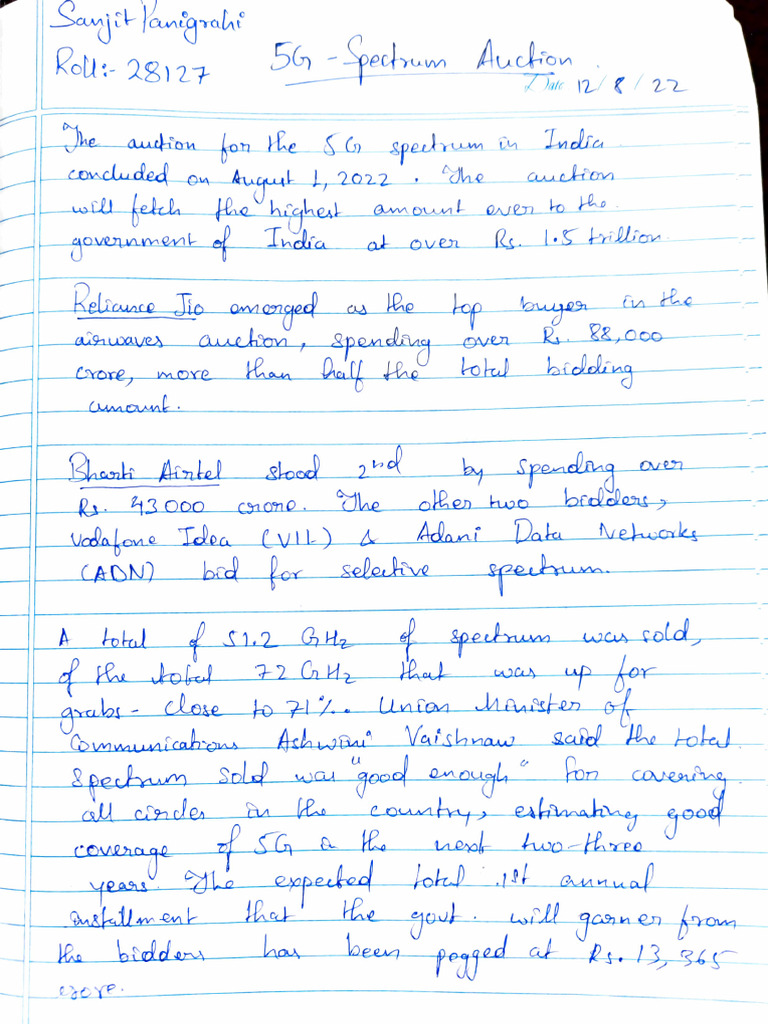 Sanjit Panigrahi
Roll:- 28127
5G - Spectrum Auction.
Date 12/8/22
The auction for the 5G spectrum in India
concluded on August 1, 2022. The auction
will fetch the highest amount ever to the
government of India at over Rs. 1.5 trillion.
Reliance Jio emerged as the top buyer in the
airwaves auction, spending over Rs. 88,000
crore, more than half the total bidding
amount.
Bharti Airtel stood 2nd by spending over
Rs. 43000 crore. The other two bidders,
Vodafone Idea (VIL) & Adani Data Networks
(ADN) bid for selective spectrum.
A total of 51.2 GHz of spectrum was sold,
of the total 72 GHz that was up for
grabs - close to 71%. Union Minister of
Communications Ashwini Vaishnaw said the total
spectrum sold was "good enough" for covering
all circles in the country, estimating good
coverage of 5G in the next two-three
years. The expected total 1st annual
installment that the govt. will garner from
the bidders has been pegged at Rs. 13,365
crore.